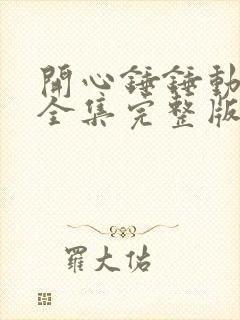 開心錘錘動
全集完整版
羅大佑